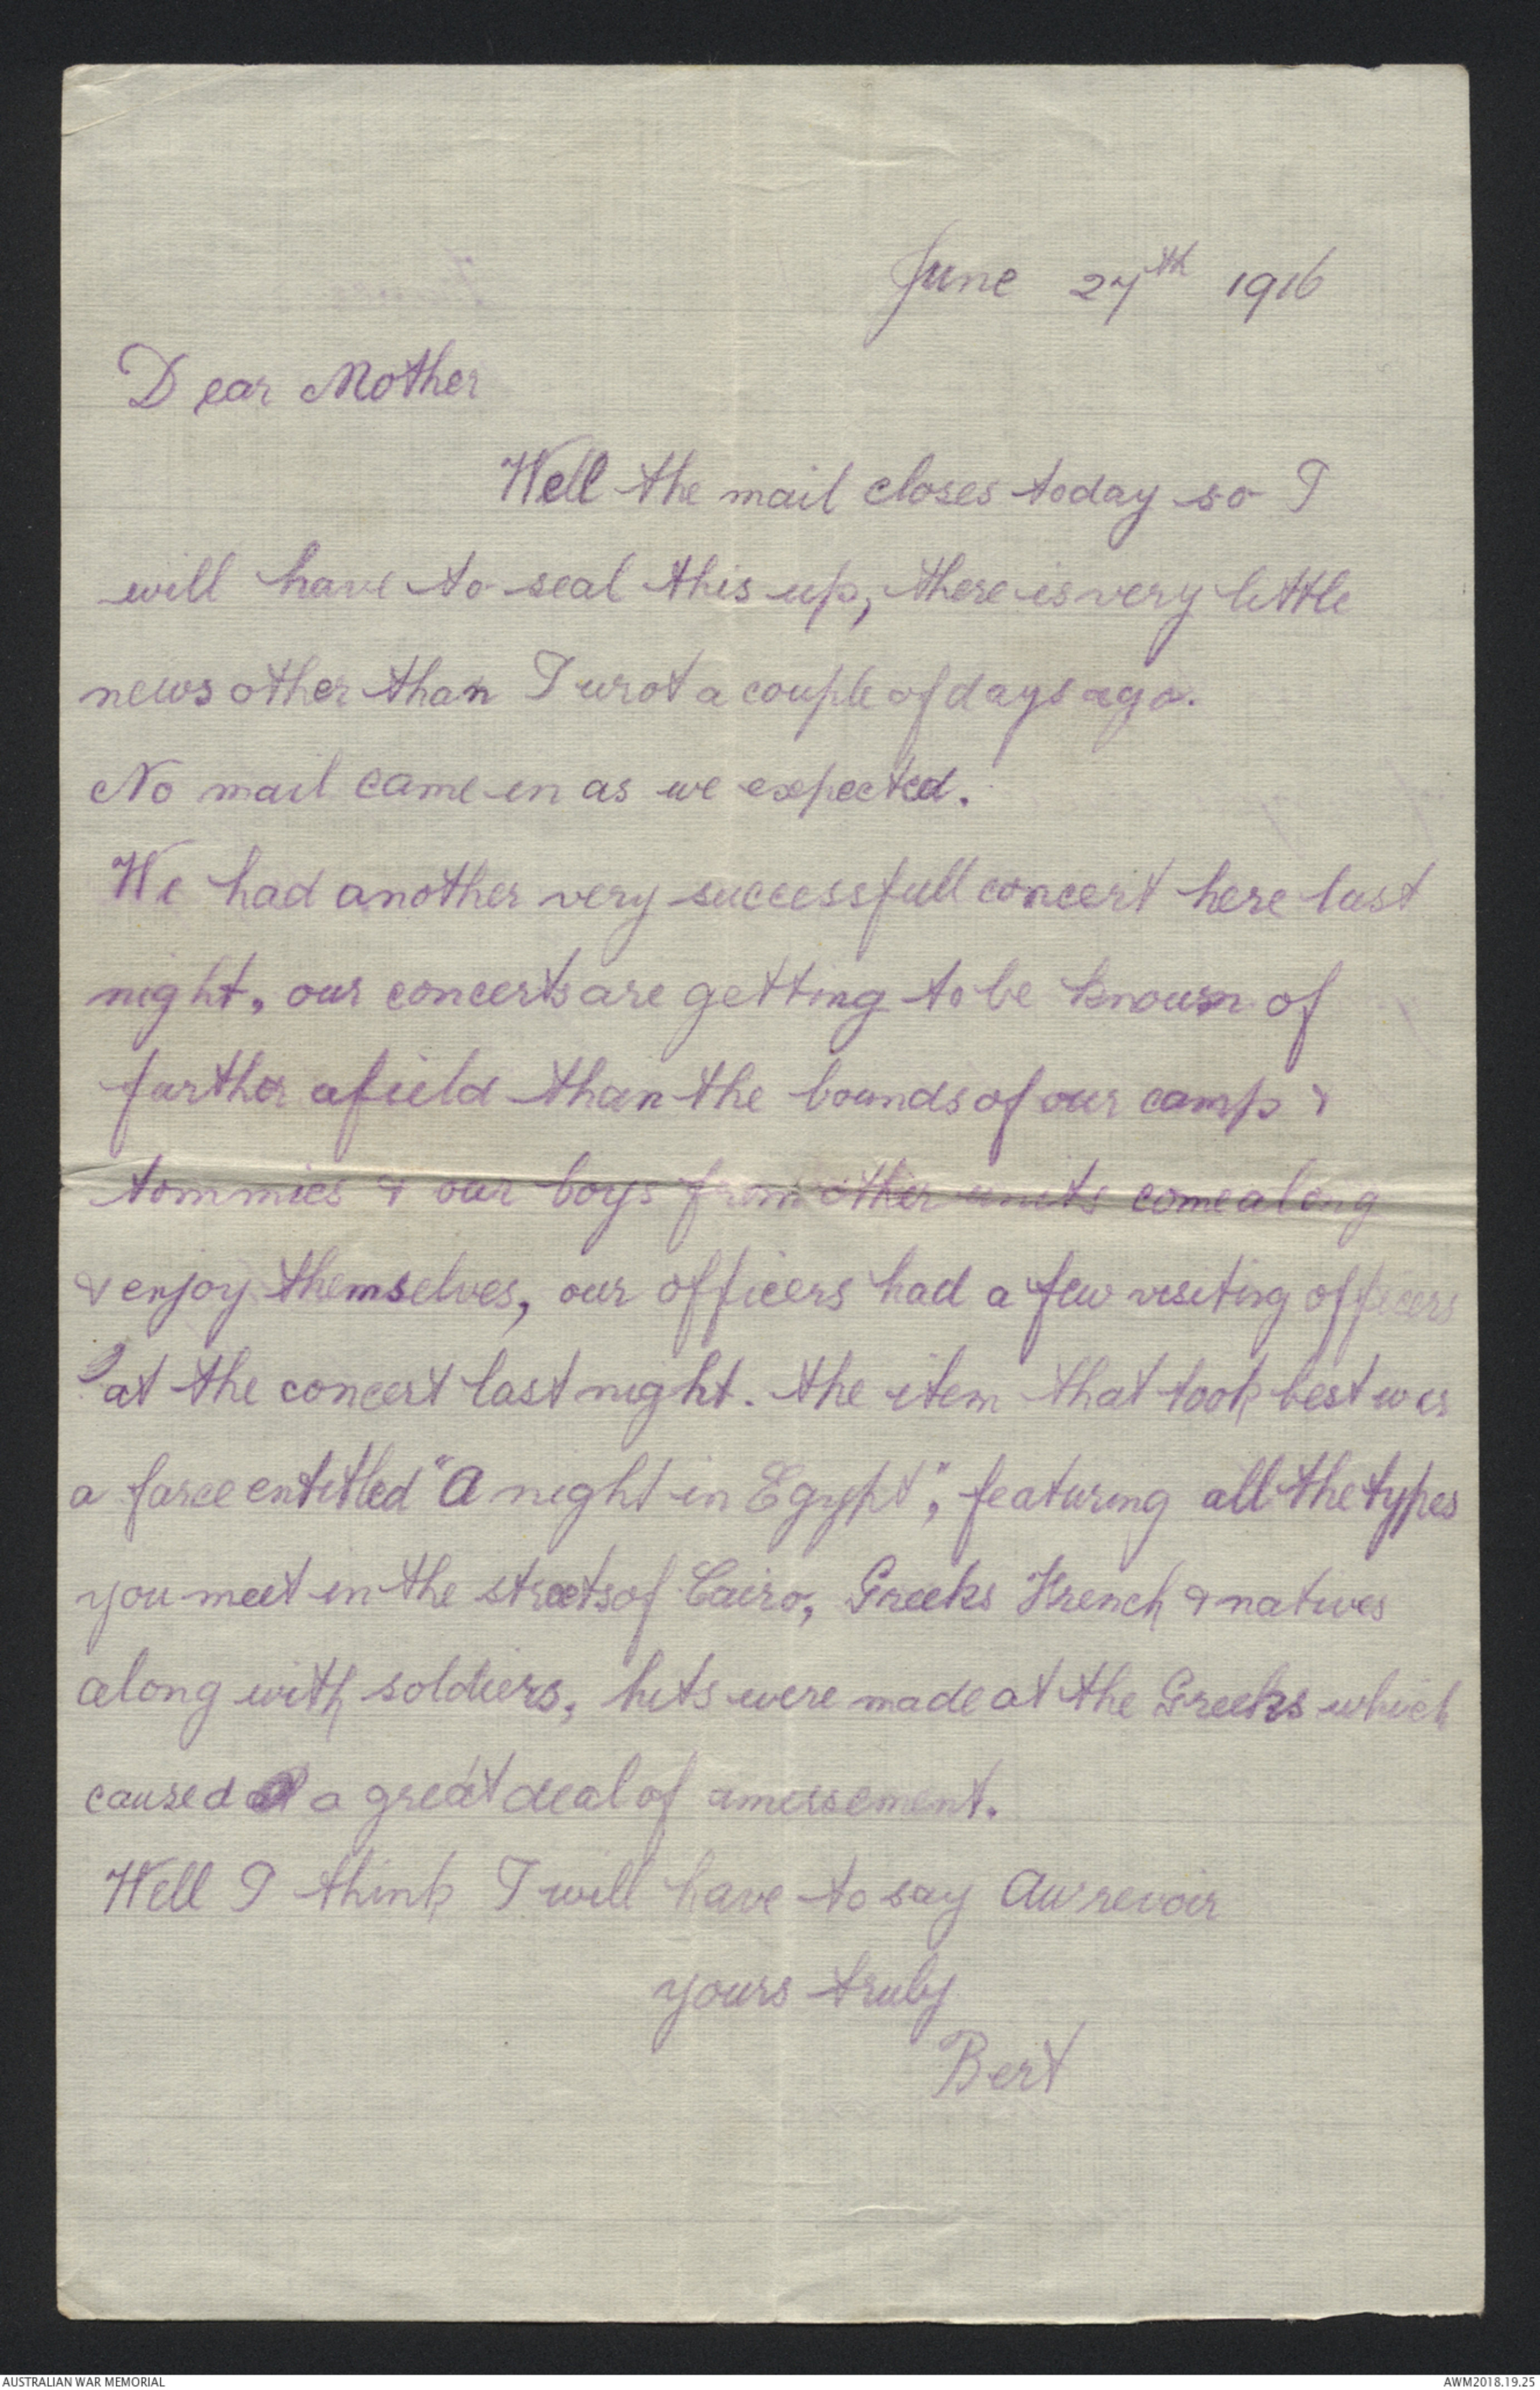 June 27th 1916
Dear Mother
Well the mail closes today so I
will have to seal this up, there is very little
news other than I wrot a couple of days ago.
No mail came in as we expected.
We had another very successfull concert here last
night, our concerts are getting to be known of
further afield than the bounds of our camp &
tommies & our boys from other units come along
& enjoy themselves, our officers had a few visiting officers
at the concert last night. the item that took best was
a farce entitled "A night in Egypt", featuring all the types
you meet in the streets of Cairo, Greeks French & natives
along with soldiers, hits were made at the Greeks which
caused a great deal of amusement.
Well I think I will have to say Au revoir
yours truly
Bert
AUSTRALIAN WAR MEMORIAL
AWM2018.19.25